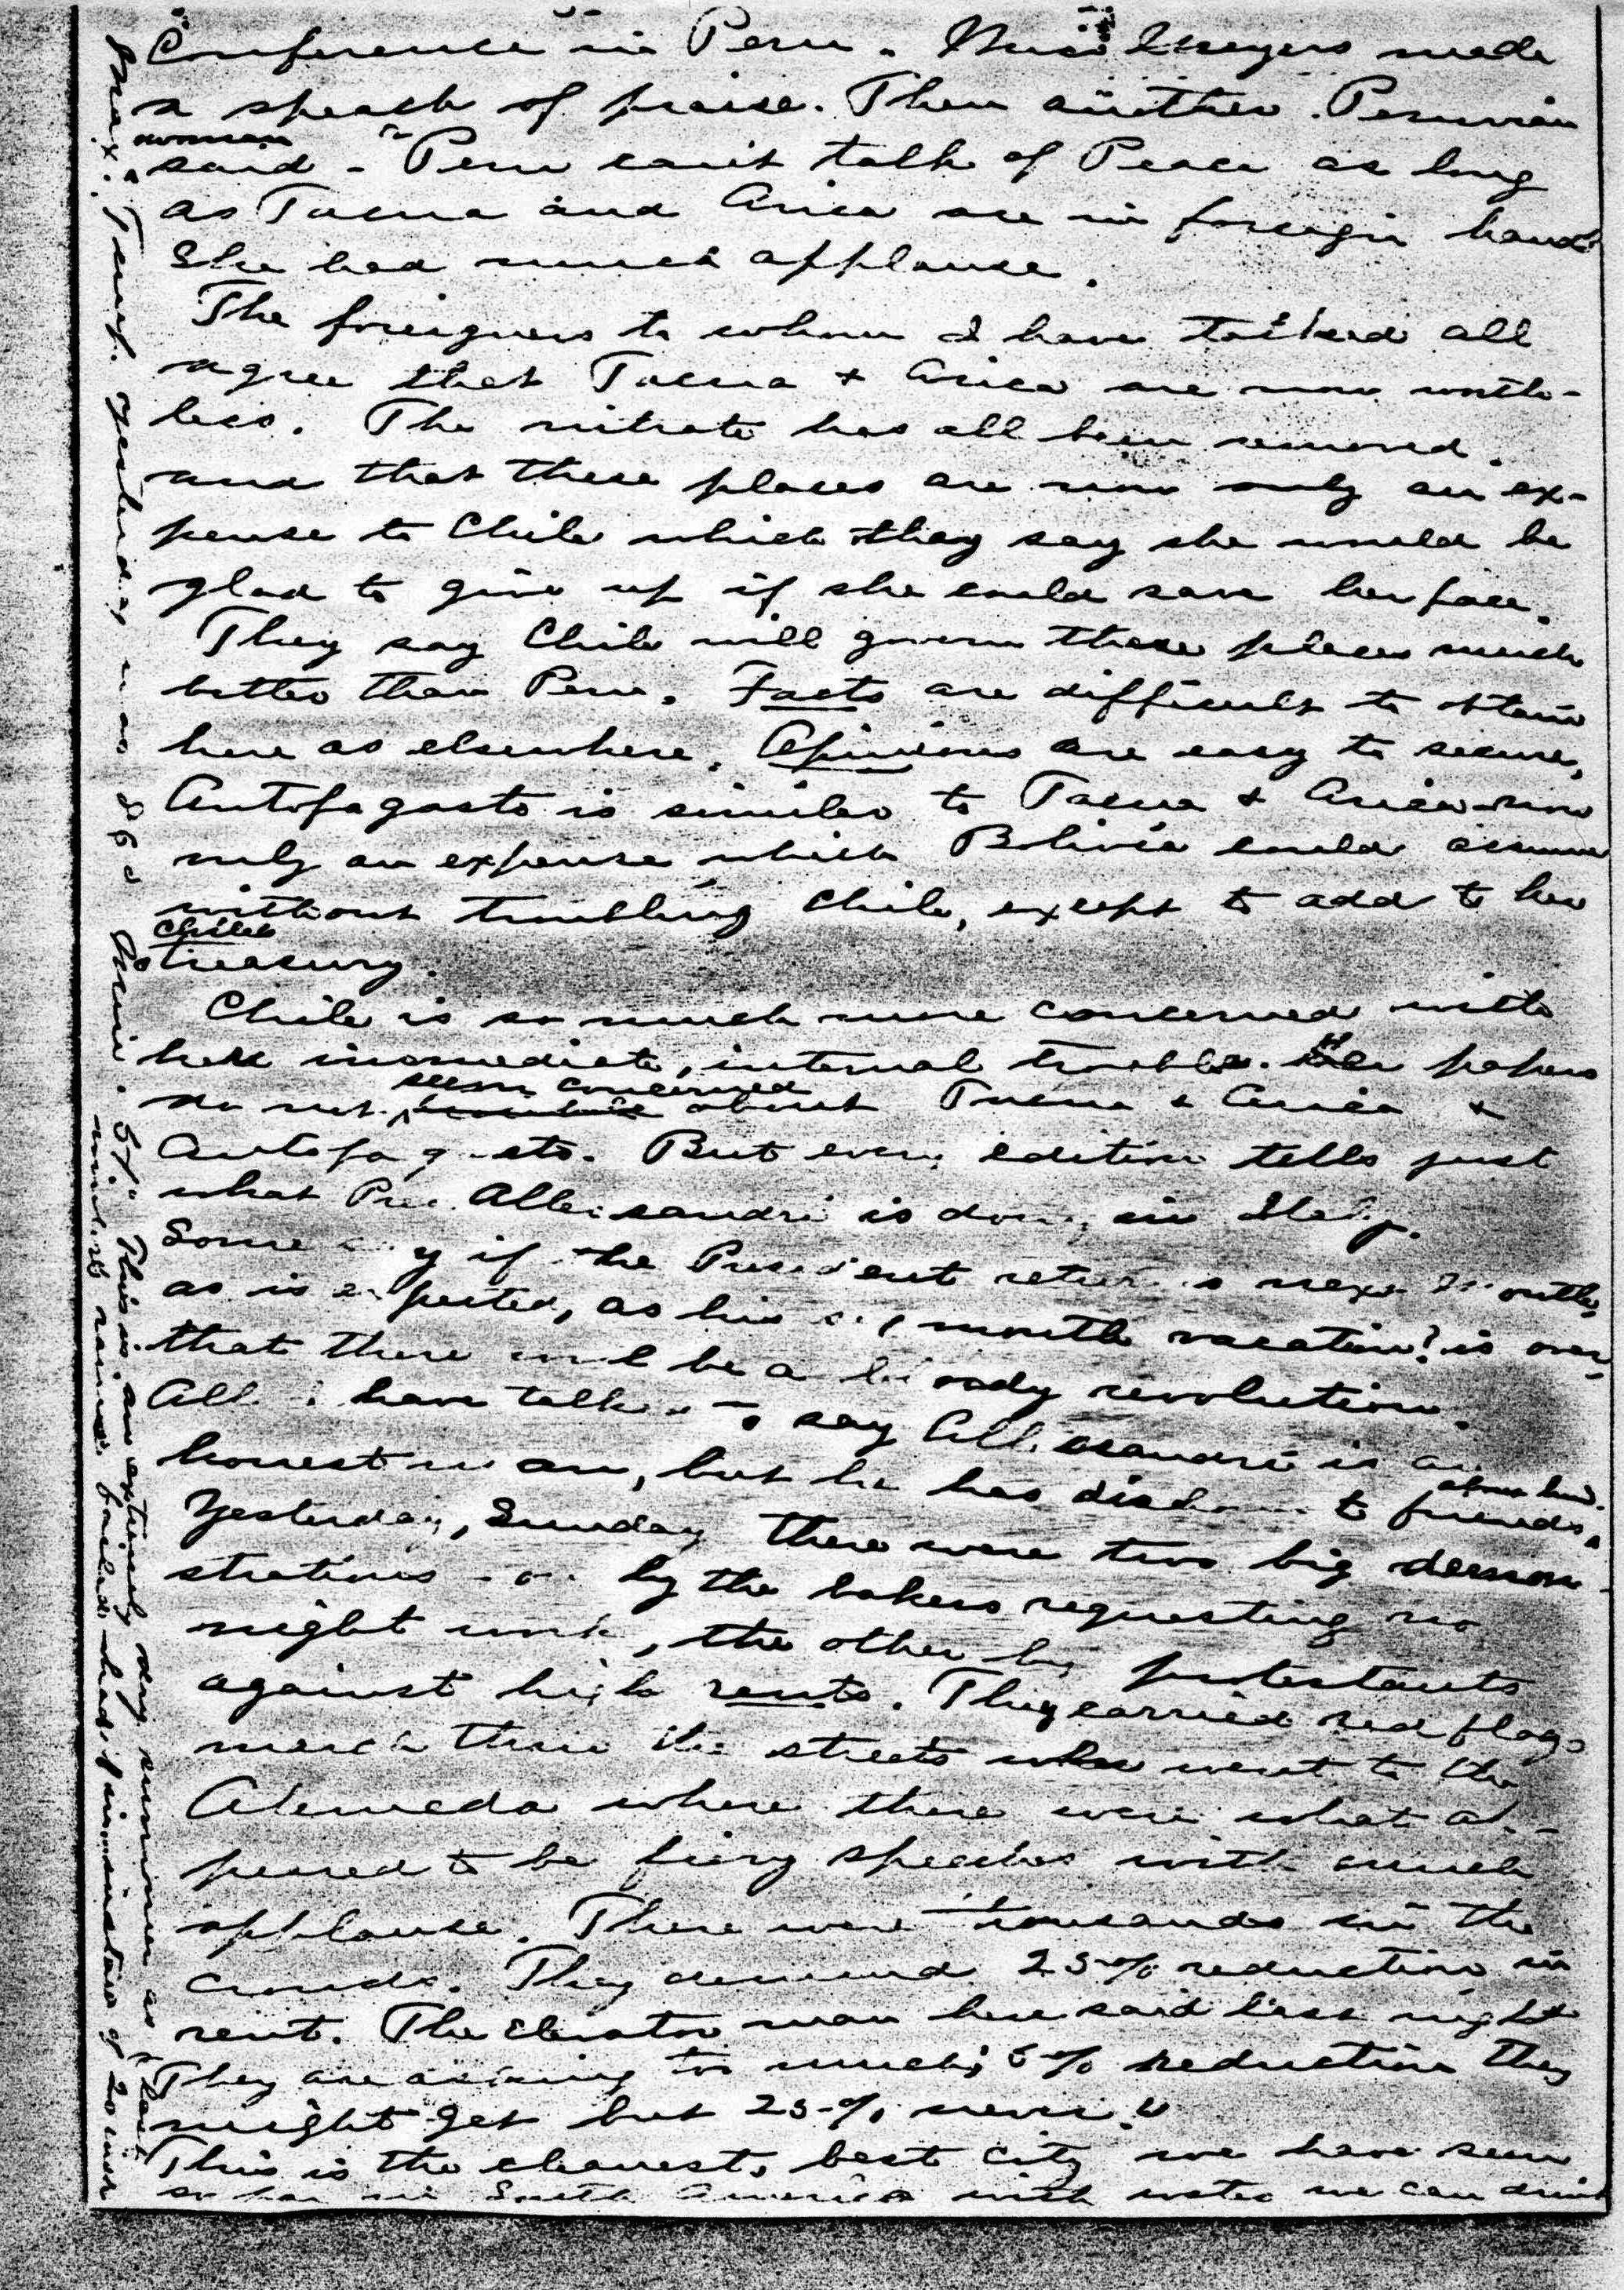 Conference in Peru. Miss made
a speach of praise. Then another Peruvian
woman
said - "Peru can't talk of Peace as long
as Tacna and Arica are in foreign hands"
She had much applause.
The foreigners to whom I have talked all
agree that Tacna + Arica are now worth-
less. The nitrate has all been removed.
and that these places are now only an ex-
pense to Chile which they say she would be
glad to give up if she could save her face.
They say Chile will govern these places much
better than Peru. Facts are difficult to obtain
here as elsewhere. Opinions are easy to secure.
Antofagasto is similar to Tacna & Arica - now
only an expense, which Bolivia could assume
without troubling Chile, except to add to her
Chiles
treasury.
Chile is so much more concerned with
her immediate, internal troubles. Her papers
seem concerned
do not about Tacna & Arica &
Antofagasto. But every edition tells just
what Pres. Allessandri is doing in Italy.
Some say if the President returns next month,
as is expected, as his six month vacation? is over,
that there will be a bloody revolution.
All I have talked to say Allessandri is an
about him.
honest man, but he has dishonest friends
Yesterday, Sunday there were two big demon-
strations - one by the bakers requesting no
night work, the other by protestants
against high rents. They carried red flags
march thru the streets when went to the
Alameda where there were what ap-
peared to be fiery speeches with much
applause. There were thousands in the
crowds. They demand 25% reduction in
rent. The elevator man here said last night
"They are asking too much, 5% reduction they
might get but 25% never."
This is the cleanest, best city we have seen
so far in South America with water we can drink
Max. Temp. yesterday was 86° Min. 51° This is an extremely dry summer as last
winter's rainfall had minus of 20 inch